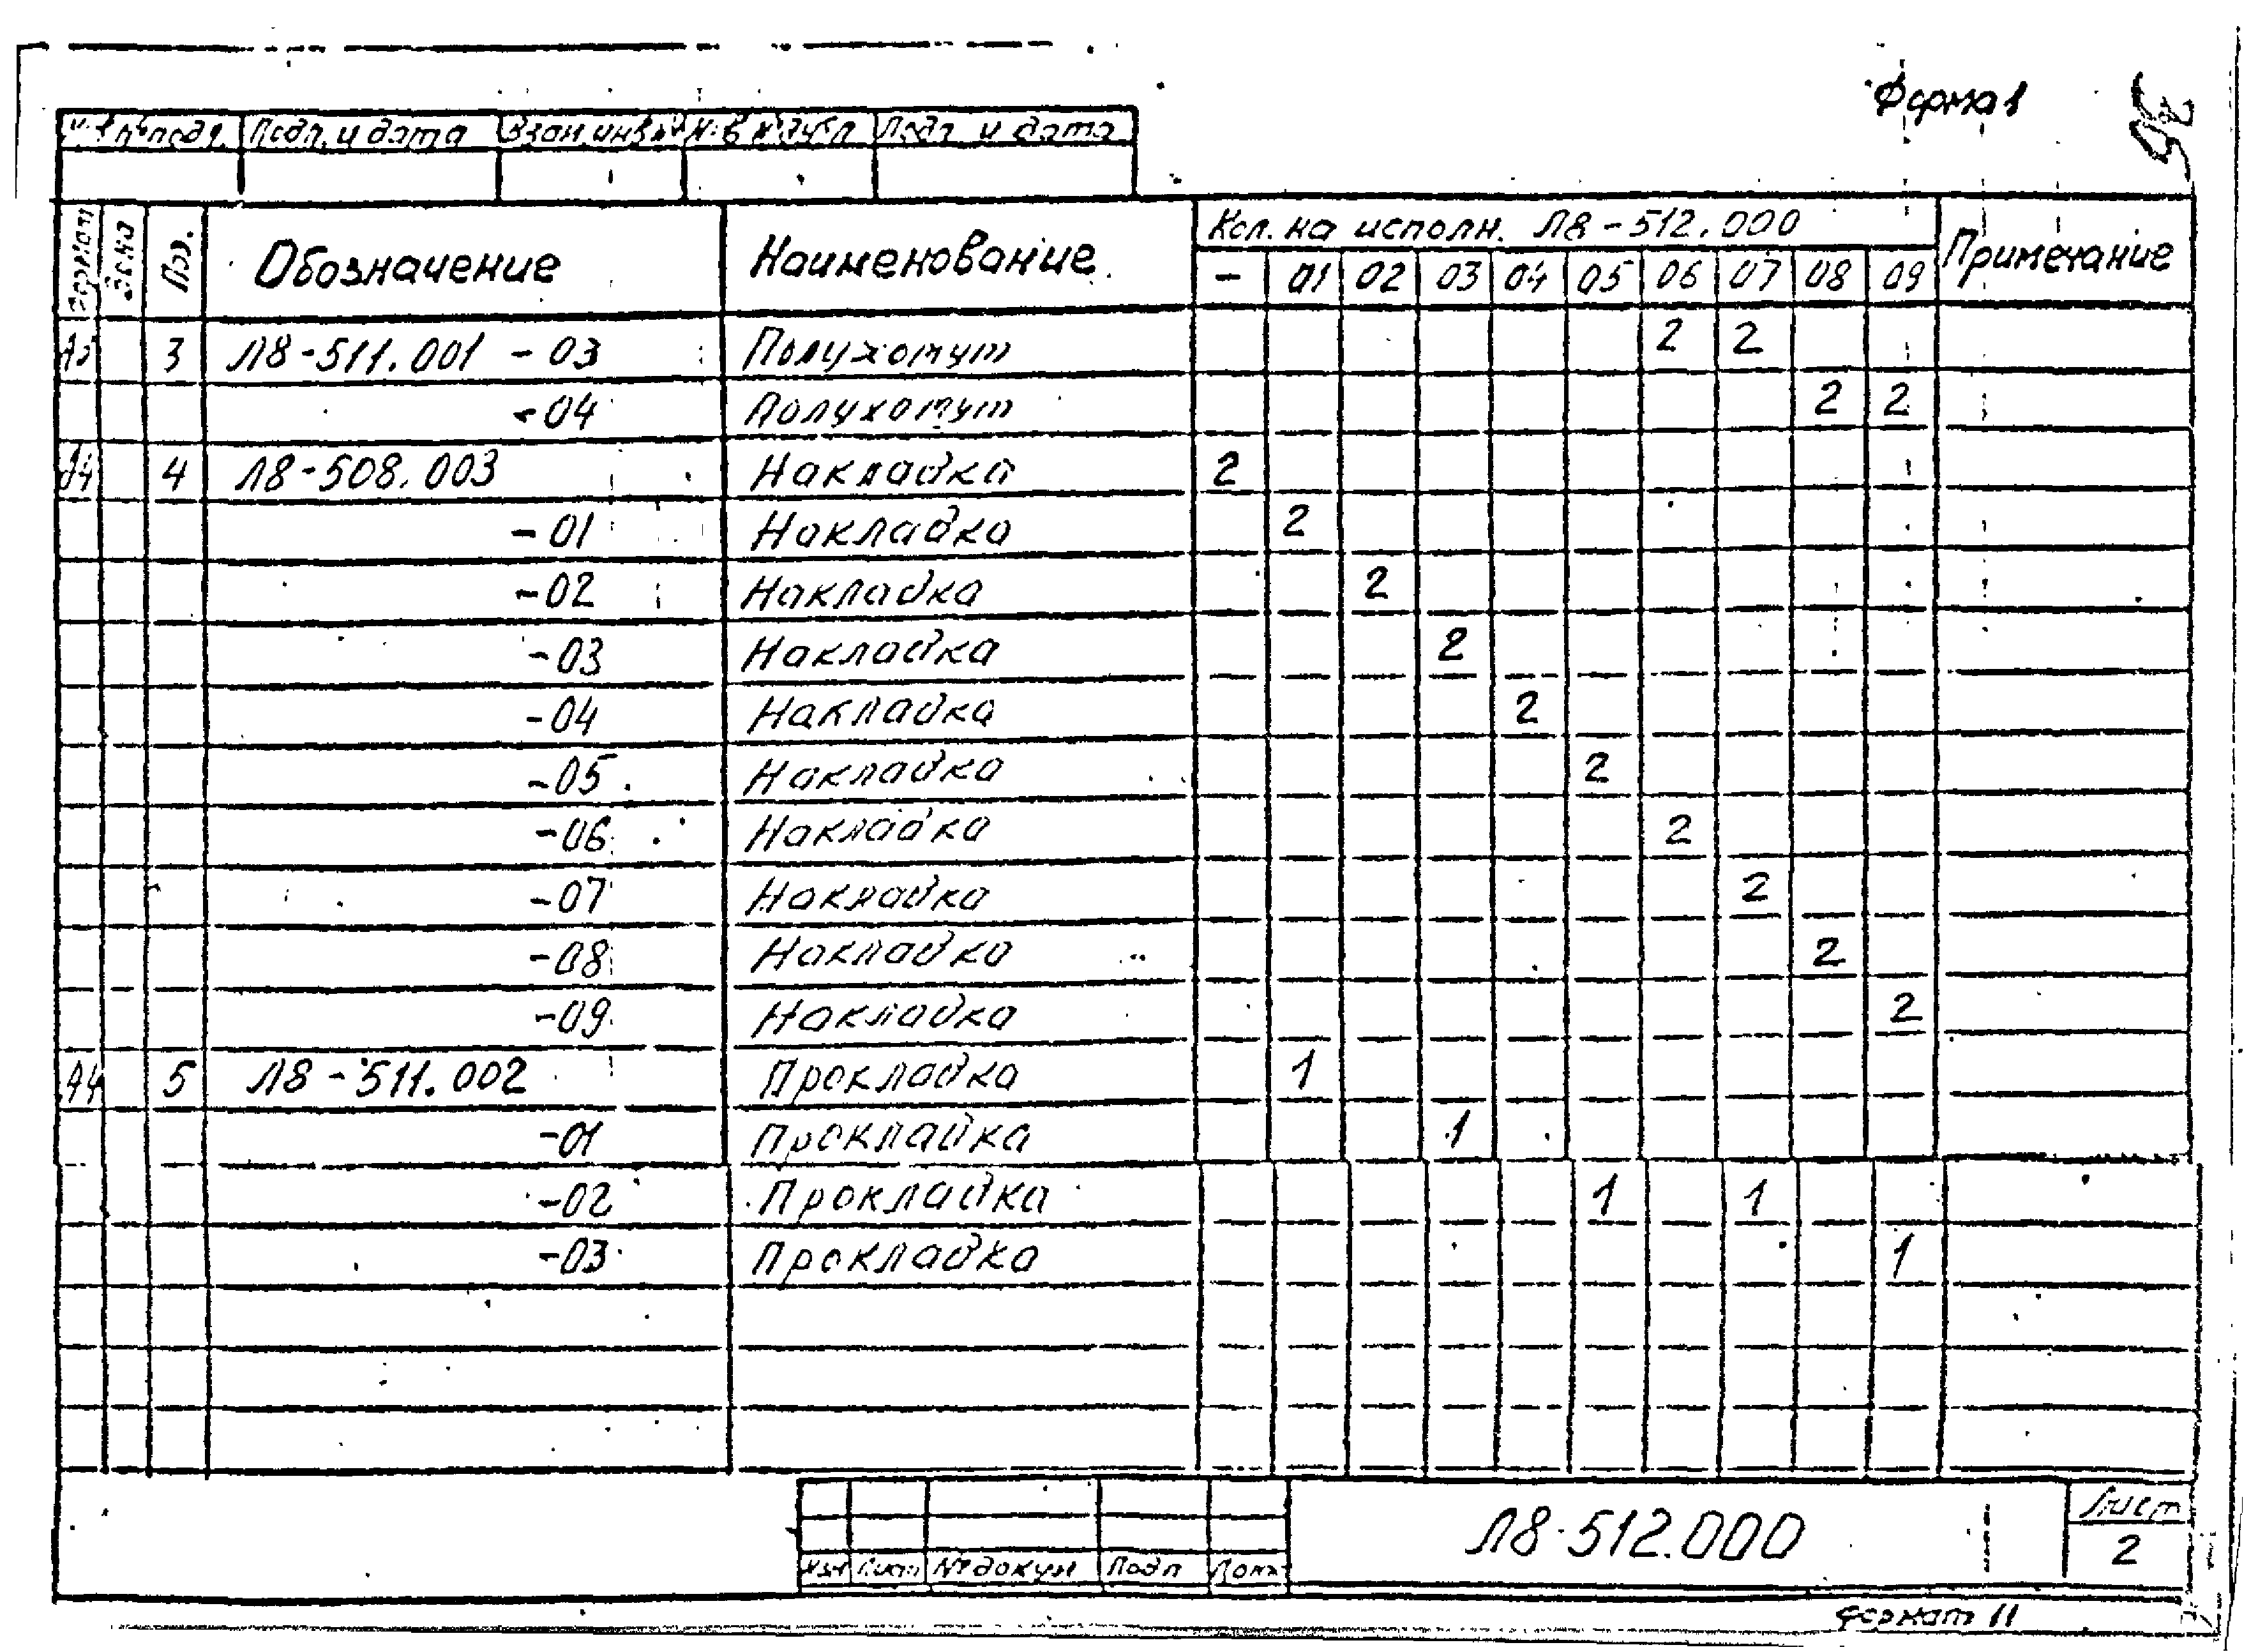 Форма 1
Инв № подл. Подп. и дата Взам. инв № Инв № дубл Подп. и дата
Формат Зона Поз. Обозначение Наименование Кол. на исполн. Л8-512.000 Примечание
- 01 02 03 04 05 06 07 08 09
3 Л8-511.001 -03 Полухомут 2 2
-04 Полухомут 2 2
А4 4 Л8-508.003 Накладка 2
-01 Накладка 2
-02 Накладка 2
-03 Накладка 2
-04 Накладка 2
-05 Накладка 2
-06 Накладка 2
-07 Накладка 2
-08 Накладка 2
-09 Накладка 2
А4 5 Л8-511.002 Прокладка 1
-01 Прокладка 1
-02 Прокладка 1 1
-03 Прокладка 1
Изм Лист № докум Подп Дата
Л8-512.000
Лист
2
Формат 11